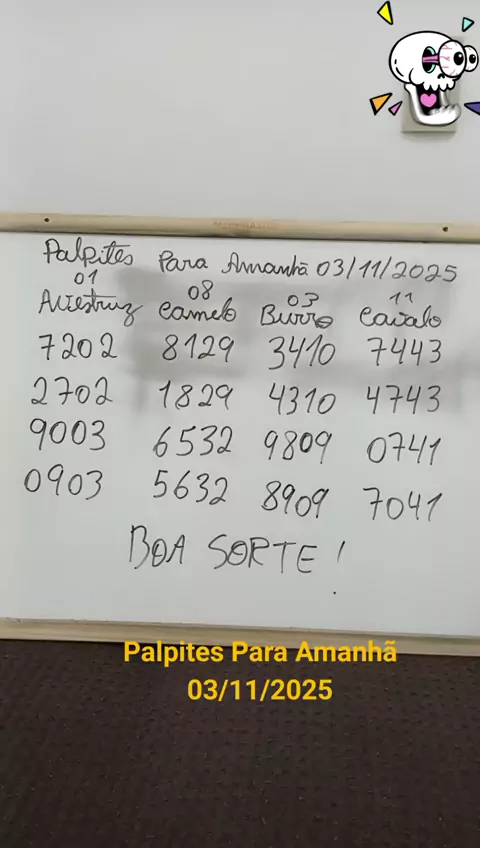 Palpites Para Amanhã 03/11/2025
01 08 03 11
Avestruz Camelo Burro Cavalo
7202 8129 3410 7443
2702 1829 4310 4743
9003 6532 9809 0741
0903 5632 8909 7041
BOA SORTE!
Palpites Para Amanhã
03/11/2025